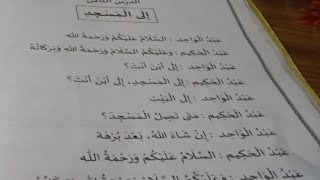 الدرس الثامن
إلى المَسْجِدِ
عَبْدُ الْوَاحِدِ : السَّلَامُ عَلَيْكُمْ وَرَحْمَةُ اللهِ
عَبْدُ الْحَكِيمِ : وَعَلَيْكُمُ السَّلَامُ وَرَحْمَةُ اللهِ وَبَرَكَاتُهُ
عَبْدُ الْوَاحِدِ : إِلَى أَيْنَ أَنْتَ؟
عَبْدُ الْحَكِيمِ : إِلَى الْمَسْجِدِ، إِلَى أَيْنَ أَنْتَ؟
عَبْدُ الْوَاحِدِ : إِلَى الْبَيْتِ
عَبْدُ الْحَكِيمِ : مَتَى تَصِلُ الْمَسْجِدَ؟
عَبْدُ الْوَاحِدِ : إِنْ شَاءَ اللهُ، بَعْدَ بُرْهَةٍ
عَبْدُ الْحَكِيمِ : السَّلَامُ عَلَيْكُمْ وَرَحْمَةُ اللهِ
عَبْدُ الْوَاحِدِ : وَعَلَيْكُمُ السَّلَامُ